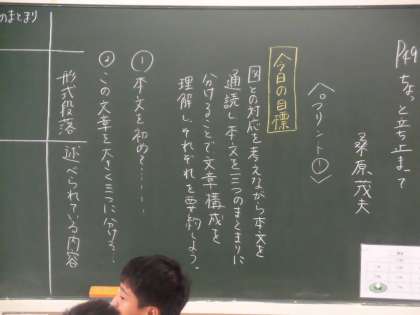 P49 ちょっと立ち止まって
桑原茂夫
〈プリント①〉
今日の目標
図との対応を考えながら本文を
通読し本文を三つのまとまりに
分けることで文章構成を
理解し、それぞれを要約しよう。
① 本文を初めて……
② この文章を大きく三つに分けう…
形式段落
述べられている内容
のまとまり